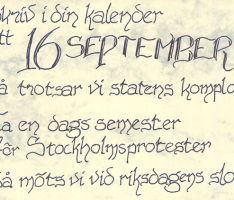 skriv i din kalender
att
16 SEPTEMBER
så trotsar vi statens komplo
Ta en dags semester
för Stockholmsprotester
så möts vi vid riksdagens slo